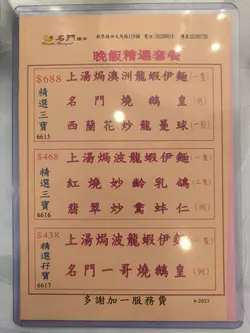 名門
晚飯精選套餐
$688 上湯焗澳洲龍蝦伊麵(一隻)
精選三寶 名門燒鵝皇(例)
6615 西蘭花炒龍躉球
$468 上湯焗波龍蝦伊麵(一隻)
精選三寶 紅燒妙齡乳鴿(二隻)
6616 翡翠炒蚌仁(例)
$438 上湯焗波龍蝦伊麵
精選孖寶 名門一哥燒鵝皇(例)
6617
多謝加一服務費
4-2023